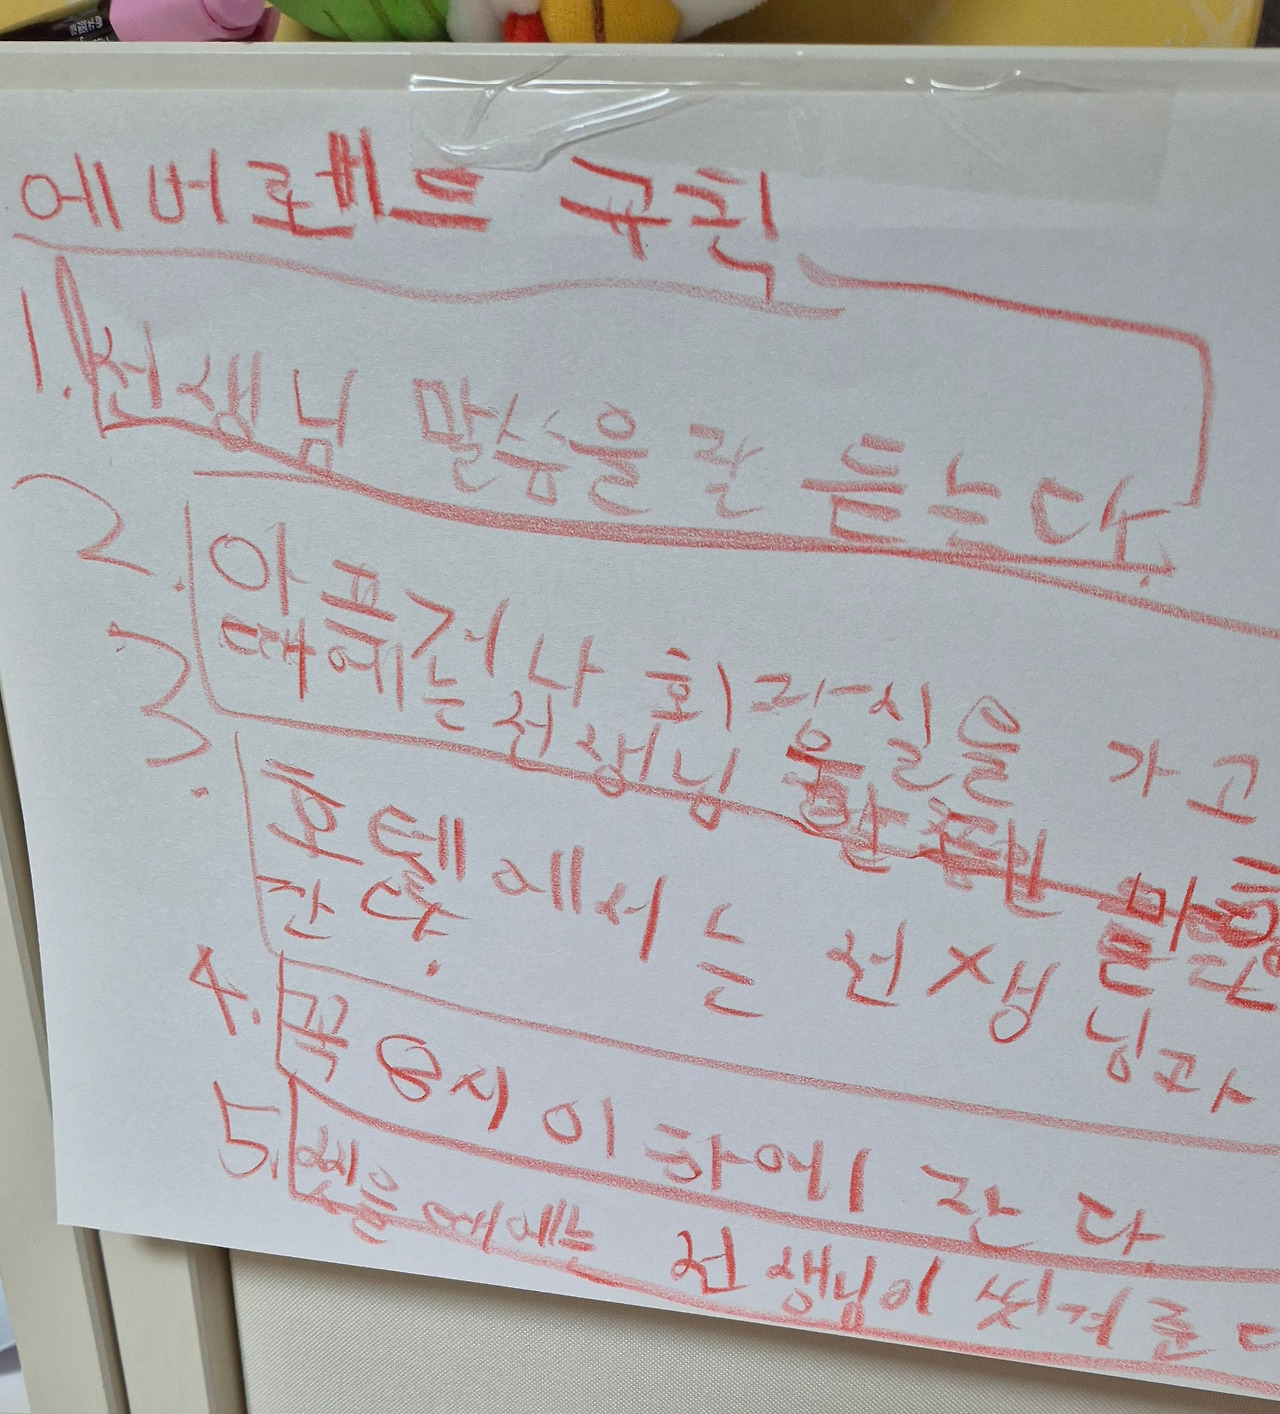 에버렌트 규칙
1. 선생님 말씀을 잘 듣는다.
2. 아프거나 화장실을 가고
때에는 선생님
3. 호텔에서는 선생님과
잔다.
4. 꼭 8시 이하에 잔다.
5. 씻을 때에는 선생님이 씻겨준다